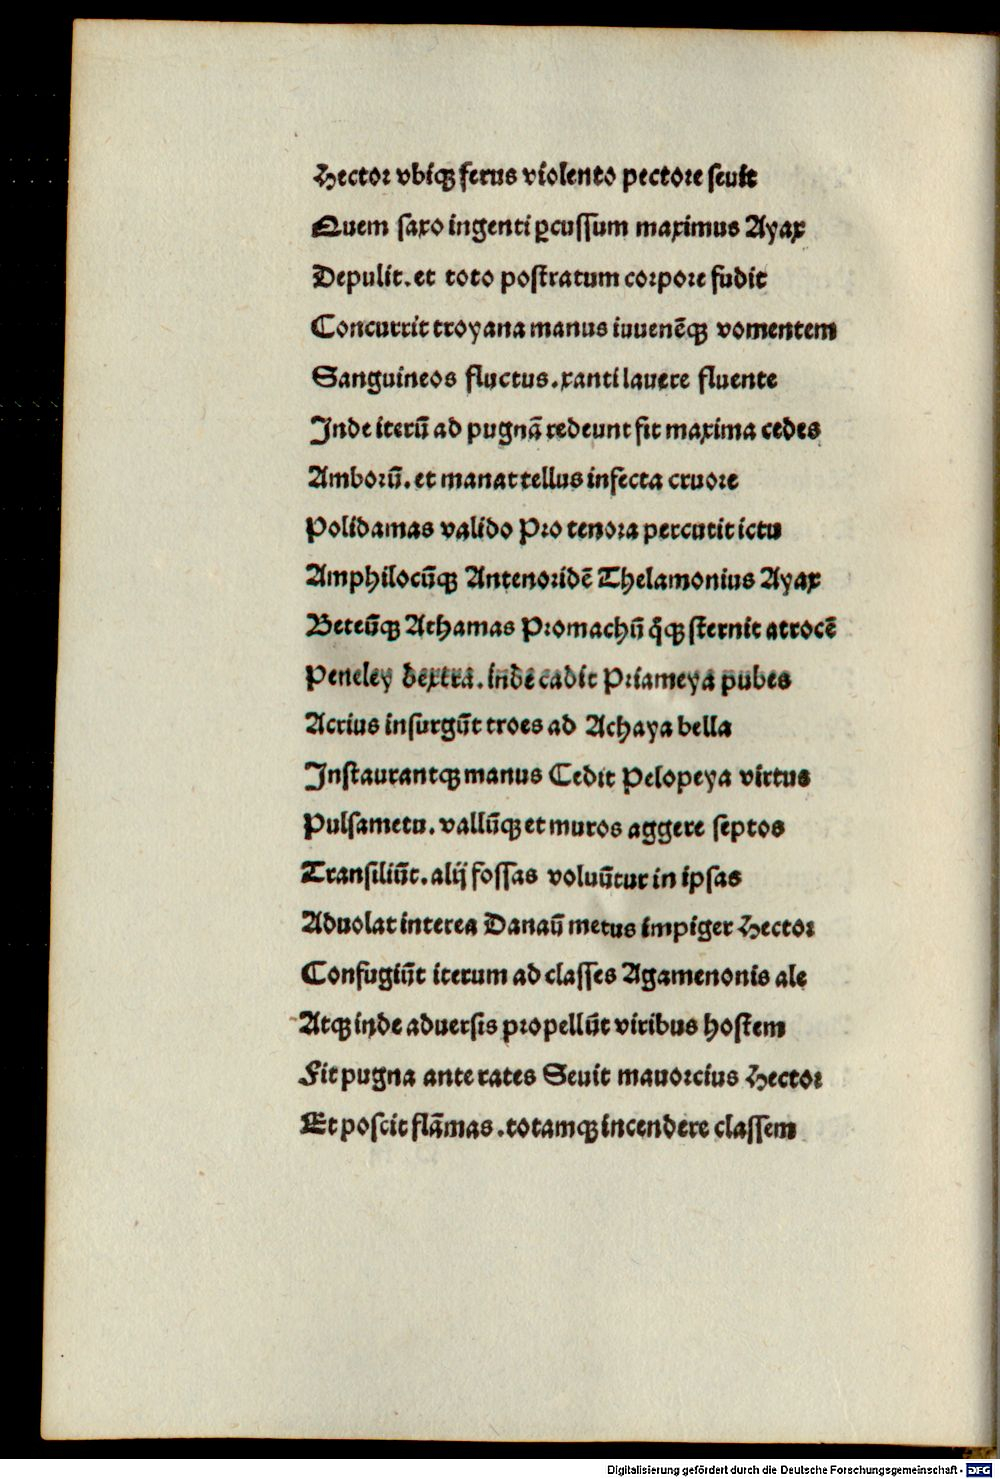 Hector vbiqꝫ ferus violento pectore seuit
Quem saxo ingenti ꝑcussum maximus Ayax
Depulit. et toto postratum corpore fudit
Concurrit troyana manus iuuenēqꝫ vomentem
Sanguineos fluctus. xanti lauere fluente
Inde iterū ad pugnā redeunt fit maxima cedes
Amborū. et manat tellus infecta cruore
Polidamas valido Pro tenora percutit ictu
Amphilocūqꝫ Antenoridē Thelamonius Ayax
Beteūqꝫ Athamas Promachū q̄qꝫ sternit atrocē
Peneley dextra. inde cadit Priameya pubes
Acrius insurgūt troes ad Achaya bella
Instaurantqꝫ manus Cedit Pelopeya virtus
Pulsa metu. vallūqꝫ et muros aggere septos
Transiliūt. alij fossas voluūtur in ipsas
Aduolat interea Danaū metus impiger Hector
Confugiūt iterum ad classes Agamenonis ale
Atqꝫ inde aduersis propellūt viribus hostem
Fit pugna ante rates Seuit mauorcius Hector
Et poscit flāmas. totamqꝫ incendere classem
Digitalisierung gefördert durch die Deutsche Forschungsgemeinschaft - DFG